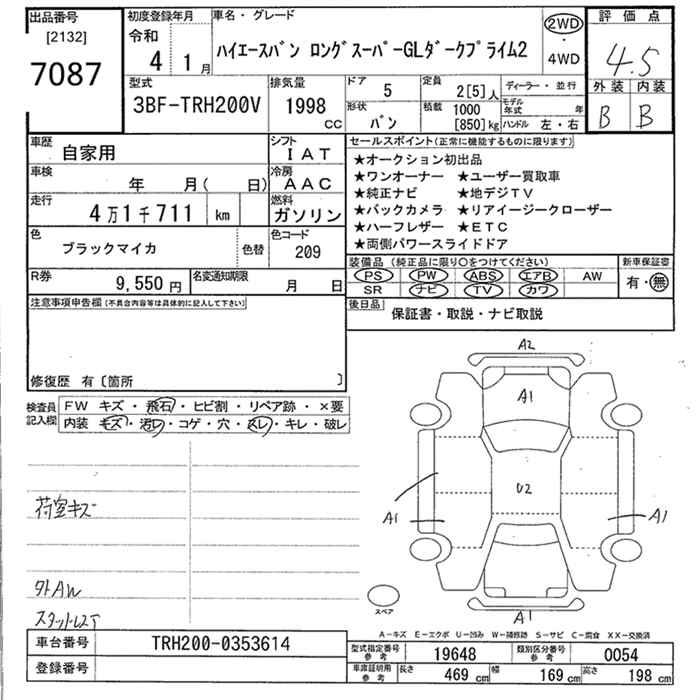 出品番号
[2132]
7087
初度登録年月
令和
4 1 月
車名・グレード
ハイエースバン ロングスーパーGLダークプライム2
2WD
・
4WD
評価点
4.5
外装 内装
B B
型式
3BF-TRH200V
排気量
1998
CC
ドア
5
形状
バン
定員
2[5]人
積載
1000
[850]kg
ディーラー・並行
モデル年式 年
ハンドル 左・右
車歴
自家用
シフト
IAT
車検
年 月( 日)
冷房
AAC
走行
4万1千711 km
燃料
ガソリン
色
ブラックマイカ
色替
色コード
209
R券
9,550円
名変通知期限
月 日
セールスポイント(正常に機能するものに限ります)
★オークション初出品
★ワンオーナー ★ユーザー買取車
★純正ナビ ★地デジTV
★バックカメラ ★リアイージークローザー
★ハーフレザー ★ETC
★両側パワースライドドア
装備品(純正品に限り○をつけてください)
PS PW ABS エアB AW
SR ナビ TV カワ
新車保証書
有・無
後日品
保証書・取説・ナビ取説
注意事項申告欄(不具合内容等は具体的に記入して下さい)
修復歴 有〔箇所 〕
検査員
記入欄
FW キズ・飛石・ヒビ割・リペア跡・×要
内装 キズ・汚レ・コゲ・穴・スレ・キレ・破レ
荷室キズ
外AW
スタッドレスT
A2
A1
U2
A1
A1
A1
スペア
A-キズ E-エクボ U-凹み W-補修跡 S-サビ C-腐食 XX-交換済
車台番号
TRH200-0353614
登録番号
型式指定番号
参考
19648
類別区分番号
参考
0054
車庫証明用
参考
長さ 469 cm 幅 169 cm 高さ 198 cm